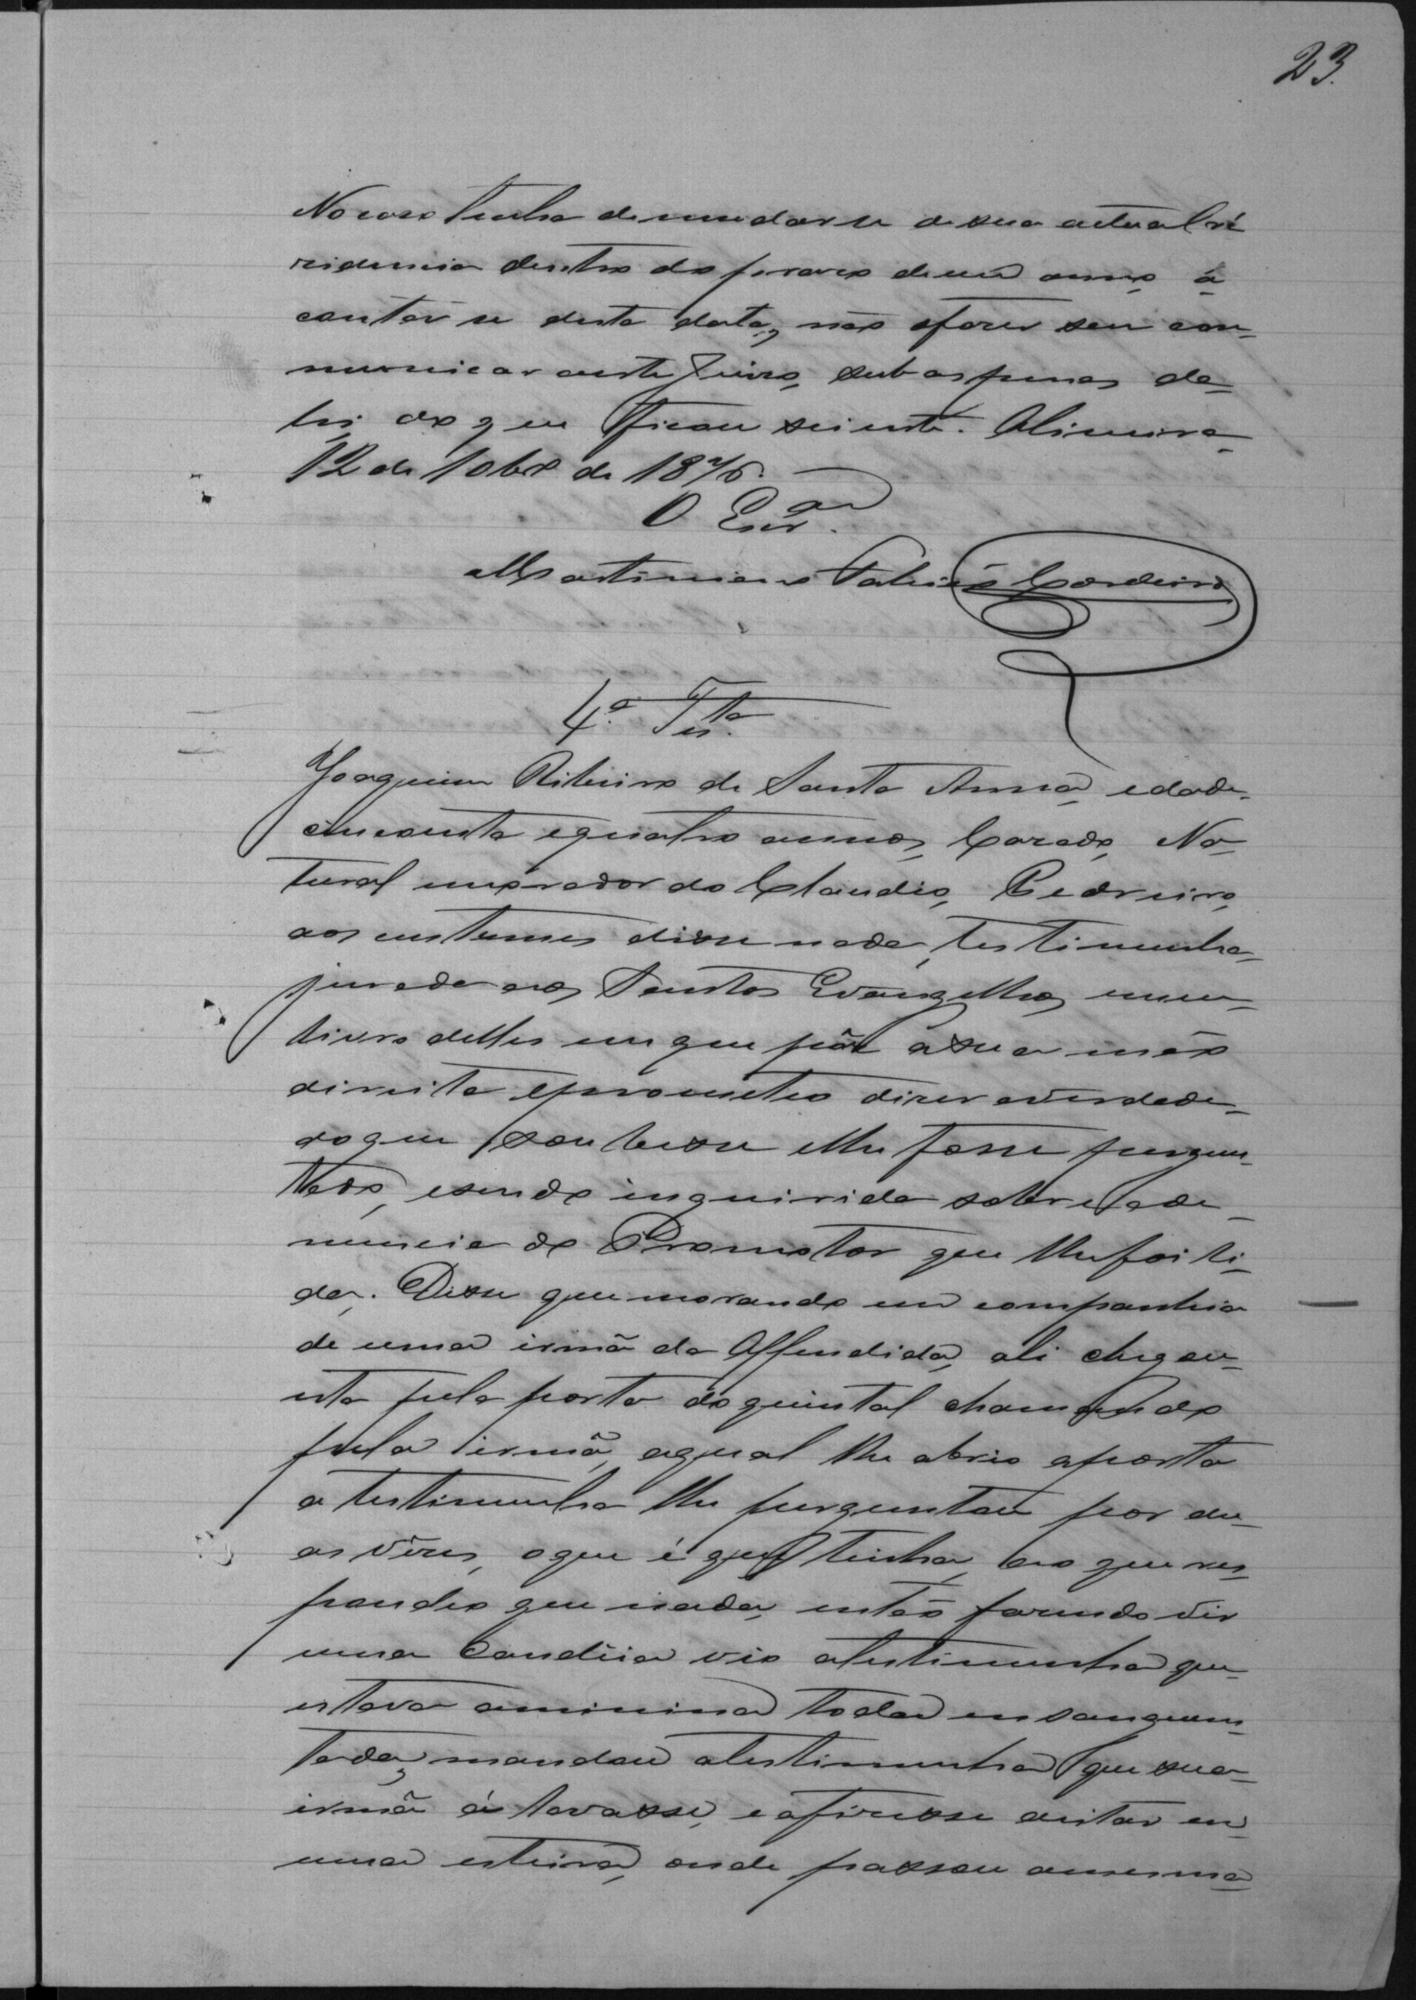 23.
No caso tenha de mudar se de sua actual re
zidencia dentro do prazo de um anno á
contar se desta data, não o fazer sem com-
municar a este Juizo, sub as penas da
lei, do que ficou sciente. Oliveira
12 de 10br.o de 1876.
O Escr.am
Martiniano Cordeiro
4.a Tes.ta
Joaquim Ribeiro de Santa Anna, edade
cincoenta e quatro annos, Casado, Na-
tural e morador do Claudio, Pedreiro,
aos custumes disse nada, testimunha
jurada aos Santos Evangelhos, em um
livro delles em que pôz a sua mão
direita e prometteo dizer a verdade
do que soubesse e lhe fosse pergun-
tado, e sendo inquirida sobre a de-
nuncia do Promotor que lhe foi li-
da. Disse que morando em companhia
de uma irmã da Offendida, ali chegou
esta pela porta do quintal chamando
pela irmã, a qual lhe abrio a porta
a testimunha lhe perguntou por du-
as vêzes, o que é que tinha, ao que res-
pondeo que nada, então fazendo vir
uma Candêia vio a testimunha que
estava a menina toda ensanguen-
tada, mandou a testimunha que sua
irmã á lavasse, e a fizesse deitar em
uma esteira, onde passou a mesma